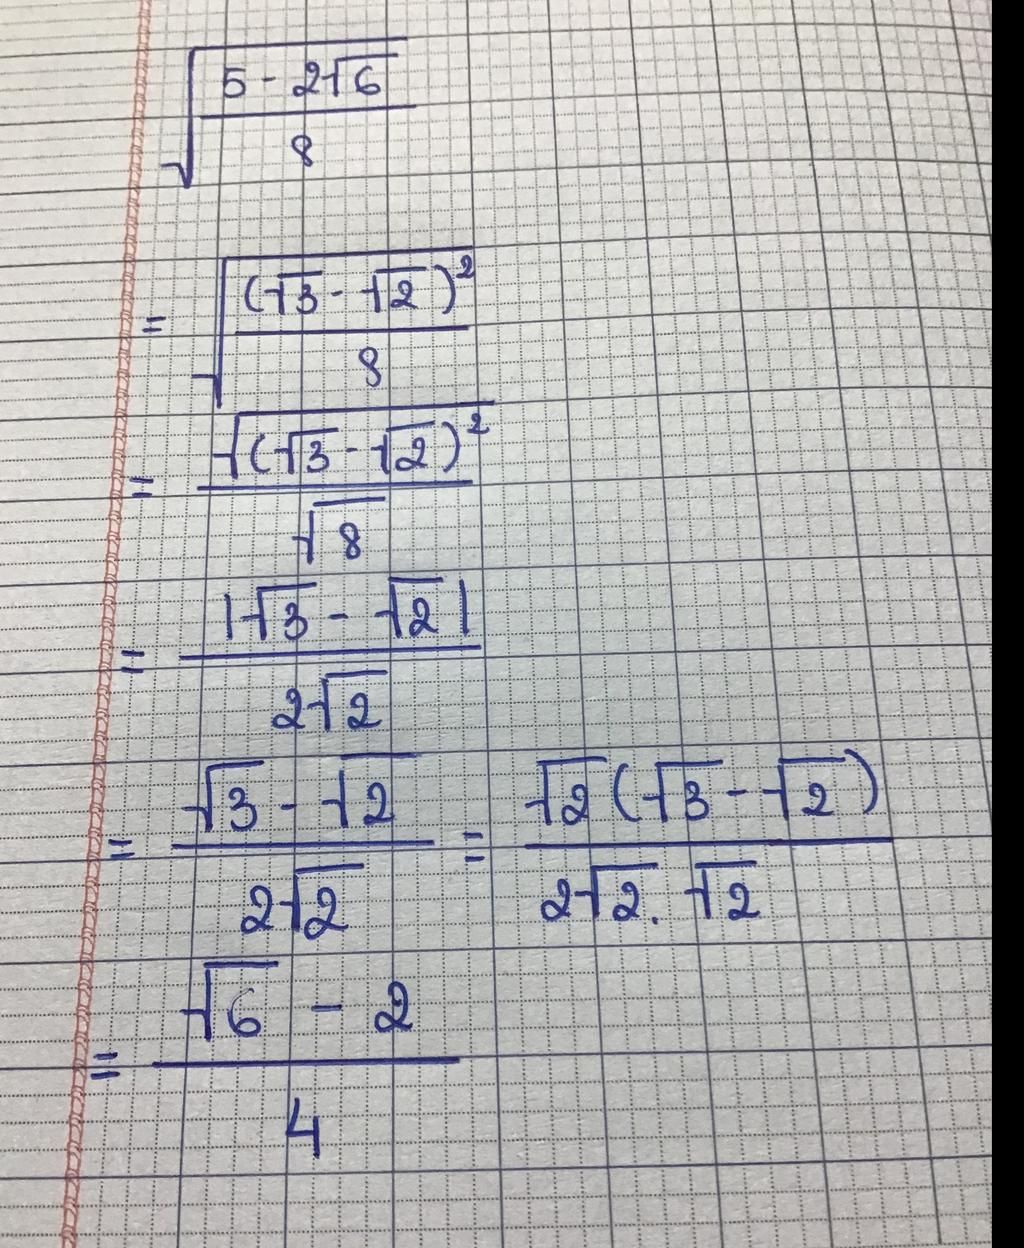 √((5 - 2√6)/8)
= √((√3 - √2)²/8)
= √((√3 - √2)²)/√8
= |√3 - √2|/(2√2)
= (√3 - √2)/(2√2) = √2(√3 - √2)/(2√2 . √2)
= (√6 - 2)/4